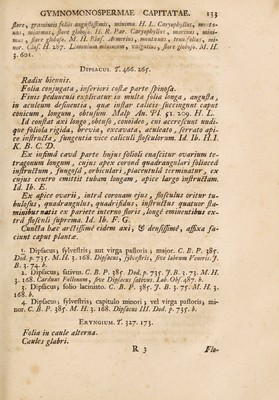 GYMNOMONOSPERMAE CAPITATAE. 133
flore, gramineis foliis angustissimis, minima. H. L. Caryophyllus, monta-
nus, minimus, flore globoso. H. R. Par. Caryophyllus, marinus, mini-
mus, flore globoso. M. H. Blæs. Armerius, montanus, tenuifolius, mi-
nor. Clus. H. 287. Limonium minimum, vulgatius, flore globoso. M. H.
3. 601.
DIPSACUS. T. 466. 265.
Radix biennis.
Folia conjugata, inferiori costæ parte spinosa.
Finis pedunculi explicatur in multa folia longa, angusta,
in aculeum desinentia, quæ instar calicis succingunt caput
conicum, longum, obtusum Malp An. Pl. 51. 209. H. L.
Id constat axi longo, obtuso, conoideo, cui accrescunt undi-
que foliola rigida, brevia, excavata, aculeato, serrato api-
ce instructa, fungentia vice caliculi flosculorum. Id. Ib. H. I.
K. B. C. D.
Ex infimâ cavâ parte hujus folioli enascitur ovarium te-
tragonum longum, cujus apex coronâ quadrangulari foliaceâ
instructum, fungosâ, orbiculari, placentulâ terminatur, ex
cujus centro emittit tubam longam, apice largo instructam.
Id. Ib. E.
Ex apice ovarii, intrâ coronam ejus, flosculus oritur tu-
bulosus, quadrangulus, quadrifidus, instructus quatuor sta-
minibus natis ex pariete interno floris, longè eminentibus ex-
trâ flosculi suprema. Id. Ib. F. G.
Cuncta hæc arctissimè eidem axi, & densissimè, affixa fa-
ciunt caput plantæ.
1. Dipsacus; sylvestris; aut virga pastoris; major. C. B. P. 385.
Dod. p. 735. M. H. 3. 168. Dipsacus, sylvestris, sive labrum Veneris. J.
B. 3. 74. b.
2. Dipsacus; sativus. C. B. P. 385. Dod. p. 735. J. B. 3. 73. M. H.
3. 168. Carduus Fullonum, sive Dipsacus sativus. Lob. Obs. 487. b.
3. Dipsacus; folio laciniato. C. B. P. 385. J. B. 3. 75. M. H. 3.
168. b.
4. Dipsacus; sylvestris; capitulo minori; vel virga pastoris; mi-
nor. C. B. P. 385. M. H. 3. 168. Dipsacus III. Dod. p. 735. b.
ERYNGIUM. T. 327. 173.
Folia in caule alterna.
Caules glabri.
R 3 Flo-